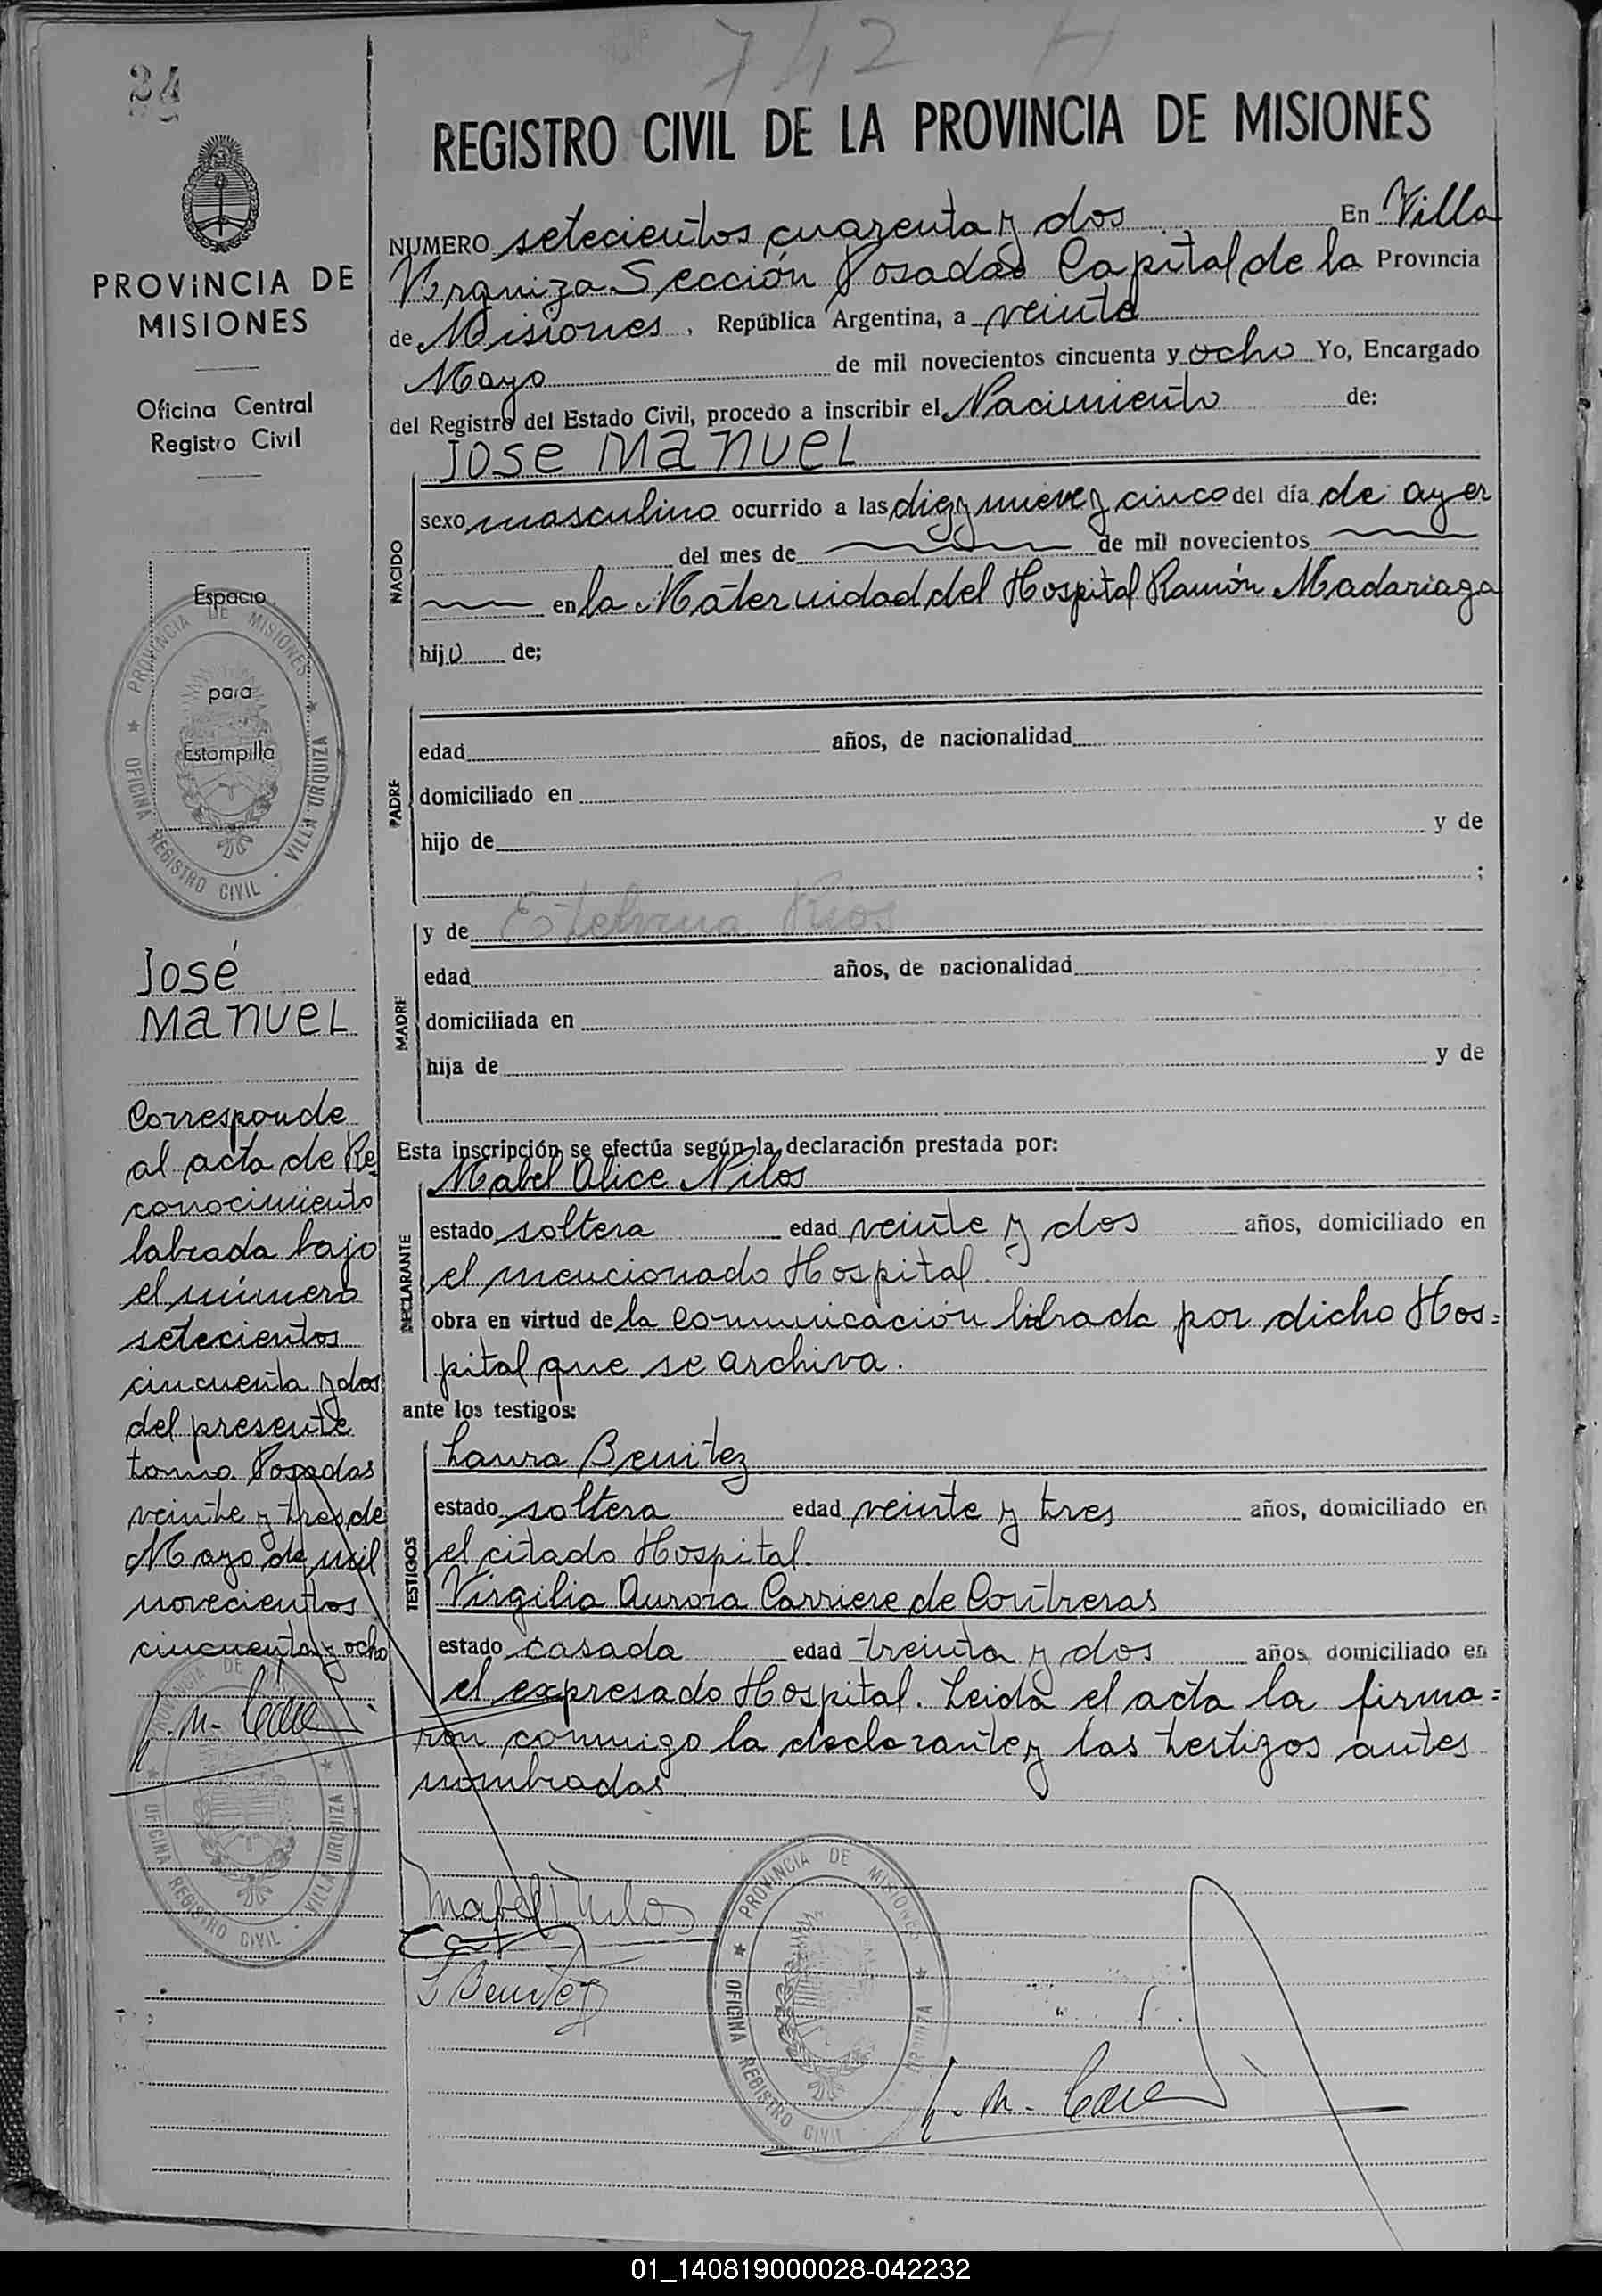 742 H
24
REGISTRO CIVIL DE LA PROVINCIA DE MISIONES
PROVINCIA DE
MISIONES
Oficina Central
Registro Civil
Espacio
para
Estampilla
PROVINCIA DE MISIONES
OFICINA REGISTRO CIVIL - VILLA URQUIZA
José
Manuel
Corresponde
al acta de Re
conocimiento
labrada bajo
el número
setecientos
cincuenta y dos
del presente
tomo. Posadas
veinte y tres de
Mayo de mil
novecientos
cincuenta y ocho
PROVINCIA DE
OFICINA REGISTRO CIVIL - VILLA URQUIZA
NUMERO setecientos cuarenta y dos En Villa
Urquiza Sección Posadas Capital de la Provincia
de Misiones, República Argentina, a veinte
Mayo de mil novecientos cincuenta y ocho Yo, Encargado
del Registro del Estado Civil, procedo a inscribir el Nacimiento de:
Jose Manuel
NACIDO
sexo masculino ocurrido a las diez y nueve y cinco del día de ayer
del mes de de mil novecientos
en la Maternidad del Hospital Ramón Madariaga
hijo de;
PADRE
edad años, de nacionalidad
domiciliado en
hijo de y de
;
MADRE
y de Etelvina Rios
edad años, de nacionalidad
domiciliada en
hija de y de
Esta inscripción se efectúa según la declaración prestada por:
DECLARANTE
Mabel Alice Nilos
estado soltera edad veinte y dos años, domiciliado en
el mencionado Hospital.
obra en virtud de la comunicación librada por dicho Hos=
pital que se archiva.
ante los testigos:
TESTIGOS
Laura Benitez
estado soltera edad veinte y tres años, domiciliado en
el citado Hospital.
Virgilia Aurora Carriere de Contreras
estado casada edad treinta y dos años domiciliado en
el expresado Hospital. Leida el acta la firma=
ron conmigo la declarante y las testigos antes
nombradas.
Mabel Nilos
L Benitez
PROVINCIA DE MISIONES
OFICINA REGISTRO CIVIL URQUIZA
01_140819000028-042232